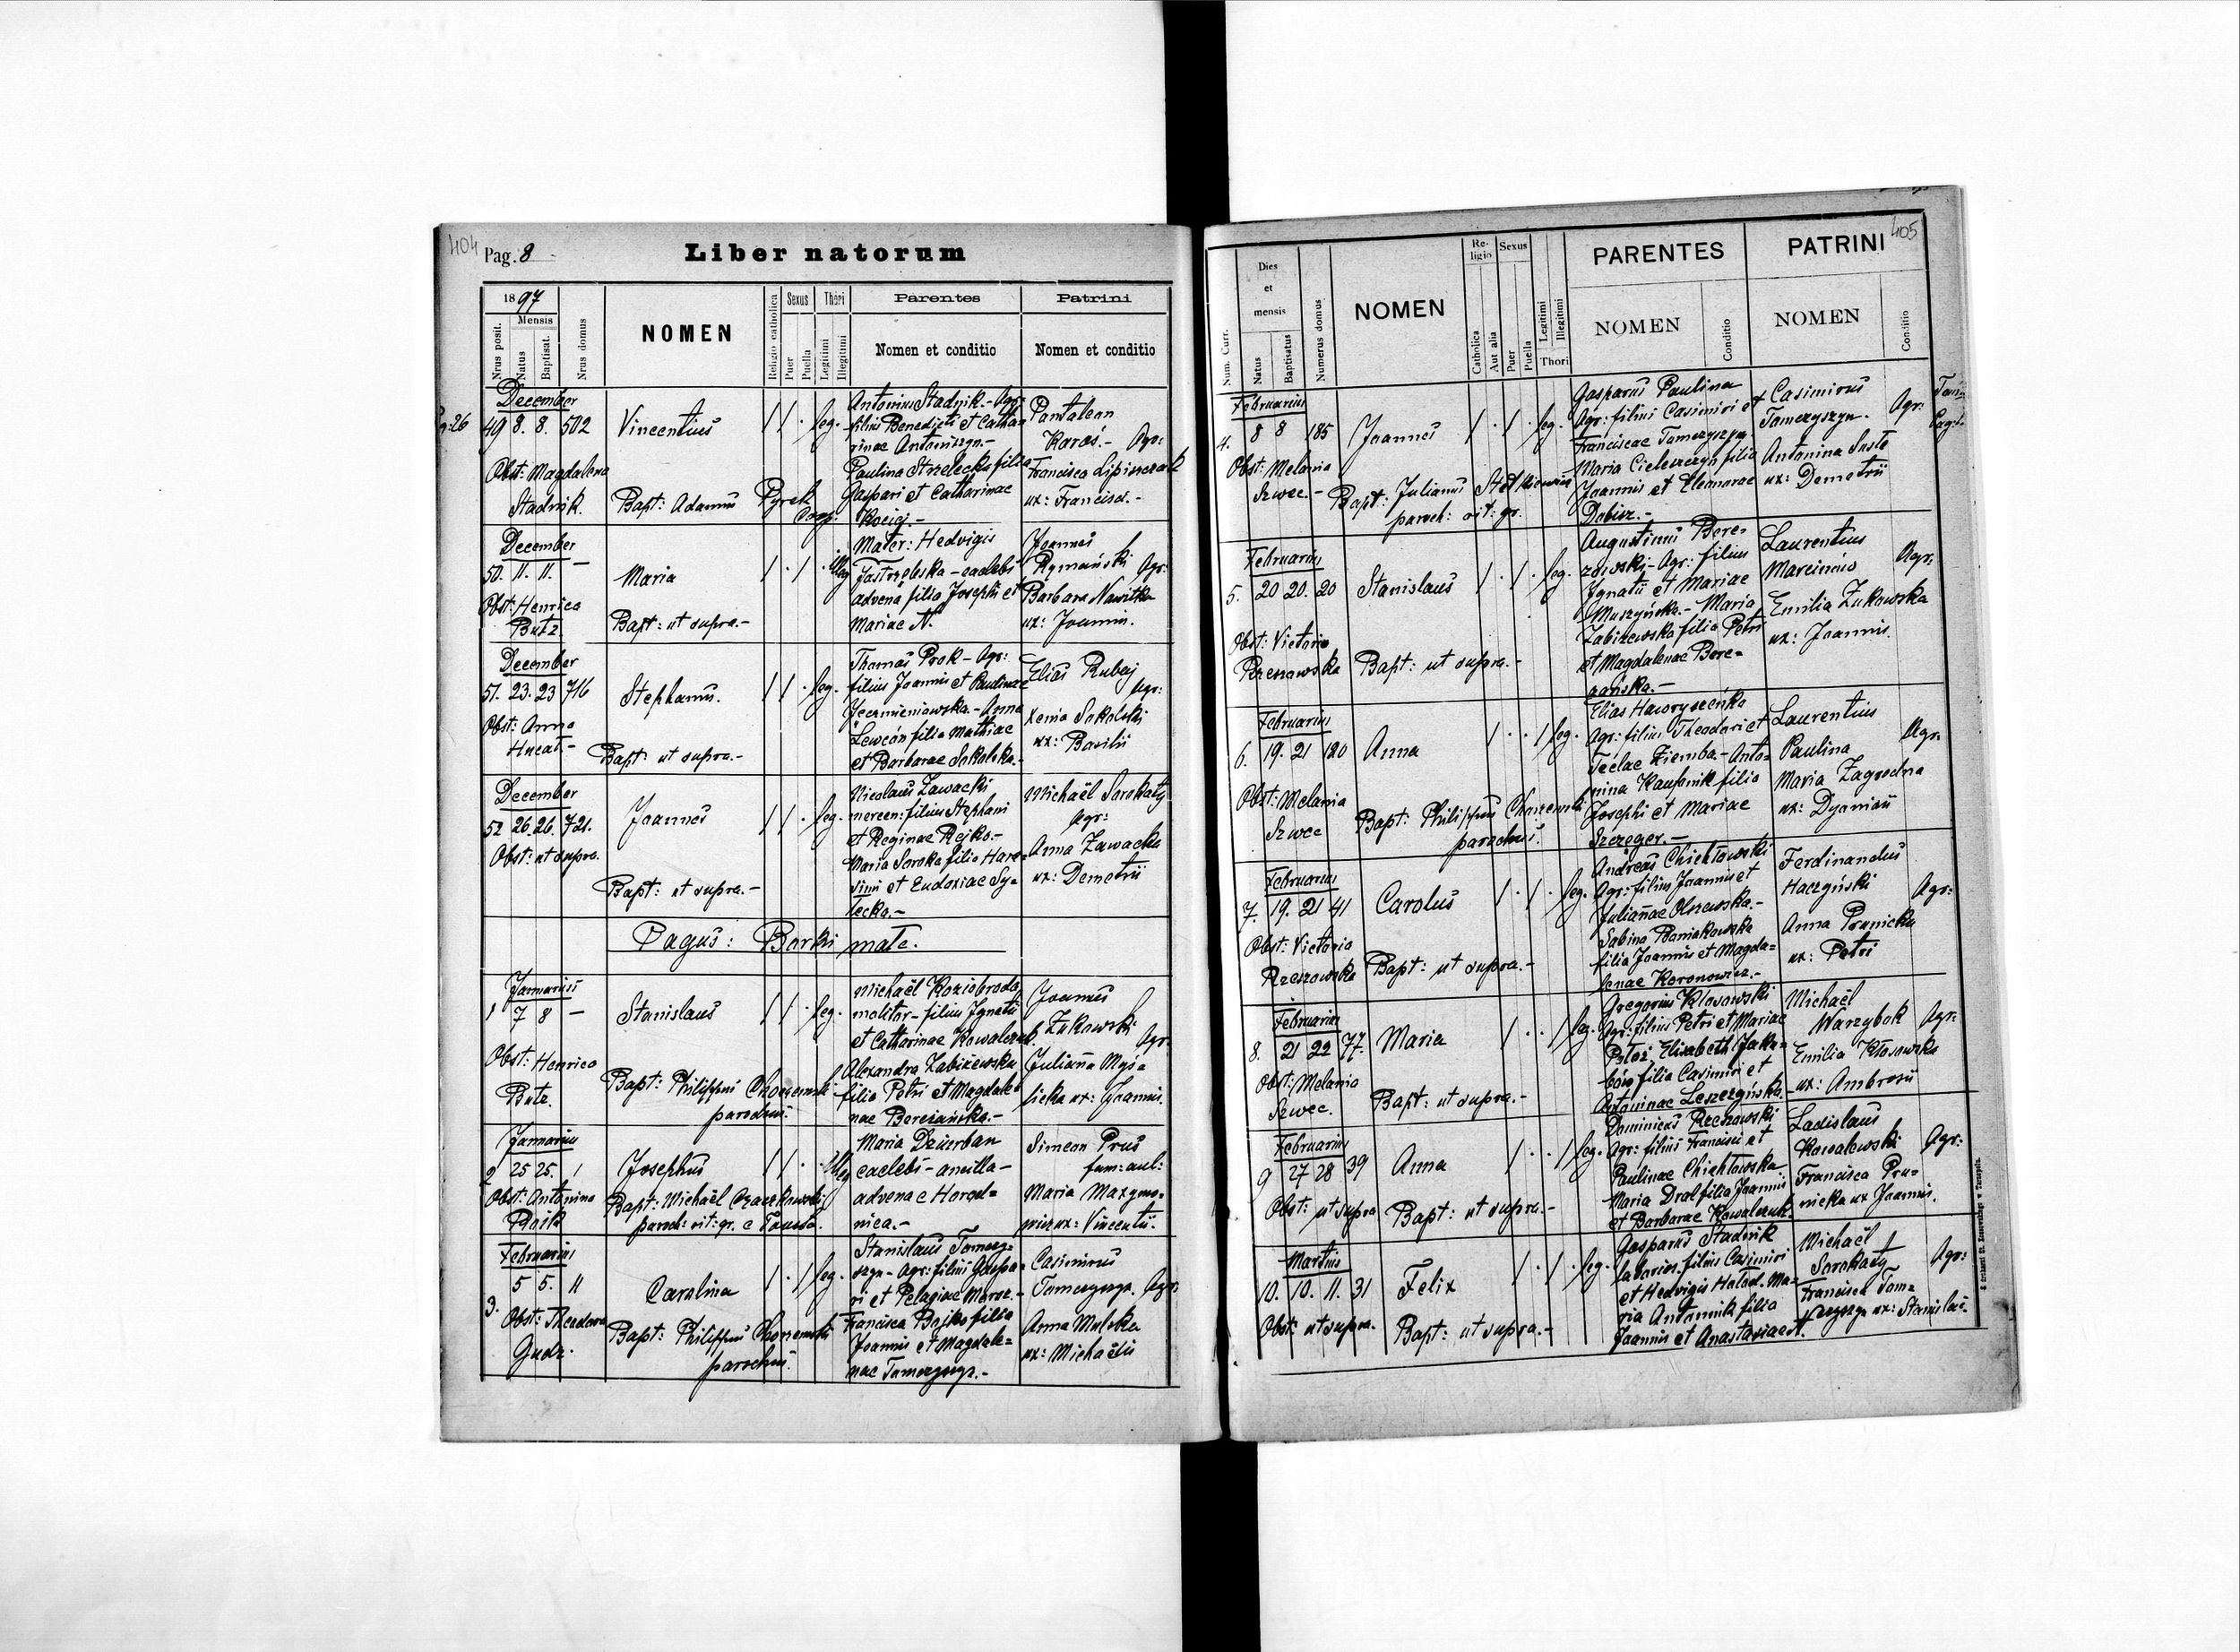 404 Pag. 8 Liber natorum
1897
Nrus posit.
Mensis
Natus
Baptisat.
Nrus domus
NOMEN
Religio catholica
Sexus
Puer
Puella
Thori
Legitimi
Illegitimi
Parentes
Nomen et conditio
Patrini
Nomen et conditio
December
49 8. 8. 502 Vincentius leg.
Obst: Magdalena
Stadnik.
Bapt: Adamus Pyrek
Coop:
Antonius Stadnik.- Agr:
filius Benedicti et Catha=
rinae Antoniszyn.-
Paulina Strzelecka filia
Gaspari et Catharinae
Kociej.-
Pantaleon
Karaś.- Agr:
Francisca Lipiszczak
ux: Francisci.-
December
50. 11. 11. - Maria Illeg
Obst: Henrica
Butz
Bapt: ut supra.-
Mater: Hedvigis
Jastrzębska - caelebs
advena filia Josephi et
Mariae N.
Joannes
Rymański Agr:
Barbara Nawitka
ux: Joannis.
December
51. 23. 23 716 Stephanus. leg.
Obst: Anna
Hucat.-
Bapt: ut supra.-
Thomas Prok - Agr:
filius Joannis et Paulinae
Jeczmieniowska.- Anna
Lewcon filia Mathiae
et Barbarae Sokolska.-
Elias Rubaj
Agr:
Xenia Sokolski
ux: Basilii
December
52 26. 26. 721. Joannes leg.
Obst: ut supra.
Bapt: ut supra.-
Nicolaus Zawacki
mercen: filius Stephani
et Reginae Rejko.-
Maria Soroka filia Hara=
simi et Eudoxiae Sy=
tecka.-
Michaël Sorokaty
Agr:
Anna Zawacka
ux: Demetrii
Pagus: Borki małe.
Januarius
1 7 8 - Stanislaus leg.
Obst: Henrica
Butz.
Bapt: Philippus Chorzemski
parochus.
Michaël Koziobroda
molitor - filius Ignatii
et Catharinae Kowalczuk.
Alexandra Zabiżewska
filia Petri et Magdale=
nae Bereżańska.-
Joannes
Żukowski Agr.
Julianna Myś=
licka ux: Joannis.
Januarius
2 25 25. 1 Josephus Illeg
Obst: Antonina
Bojk
Bapt: Michaël Czaczkowski
paroch: rit: gr. e Touste.
Maria Dziurban
caelebs - ancilla -
advena e Horod=
nica.-
Simeon Prus
fam: aul:
Maria Mazymo=
wicz ux: Vincentii.
Februarius
3. 5 5. 11 Carolina leg.
Obst: Theodora
Gudz.
Bapt: Philippus Chorzemski
parochus.
Stanislaus Tomczy=
szyn - Agr: filius Gaspa=
ri et Pelagiae Moroz.-
Francisca Bojko filia
Joannis et Magdale=
nae Tomczyszyn.-
Casimirus
Tomczyszyn. Agr:
Anna Malska
ux: Michaëlis
405
Num. Curr.
Dies
et
mensis
Natus
Baptisatus
Numerus domus
NOMEN
Religio
Catholica
Aut alia
Sexus
Puer
Puella
Legitimi
Illegitimi
Thori
PARENTES
NOMEN
Conditio
PATRINI
NOMEN
Conditio
Februarius
4. 8 8 185 Joannes leg.
Obst: Melania
Szwec.-
Bapt: Julianus
paroch: rit: gr.
Gasparus Paulina
Agr: filius Casimiri et
Franciscae Tomczyszyn.
Maria Cieleszczyn filia
Joannis et Eleonorae
Dobisz.-
Casimirus
Tomczyszyn. Agr:
Antonina Suste
ux: Demetrii
Februarius
5. 20 20. 20 Stanislaus leg.
Obst: Victoria
Rzeszowska
Bapt: ut supra.-
Augustinus Bere=
zowski - Agr: filius
Ignatii et Mariae
Muszyńska.- Maria
Zabiżewska filia Petri
et Magdalenae Bere=
żańska.-
Laurentius
Marcinów Agr:
Emilia Żukowska
ux: Joannis.
Februarius
6. 19. 21 120 Anna leg.
Obst: Melania
Szwec
Bapt: Philippus Chorzemski
parochus.
Elias Hawryszeńko
Agr: filius Theodori et
Teclae Ziemba - Anto=
nina Kaupnik filia
Josephi et Mariae
Szczeger.-
Laurentius
Paulina Agr:
Maria Zagrodna
ux: Dyonisii
Februarius
7. 19. 21 41 Carolus leg.
Obst: Victoria
Rzeszowska
Bapt: ut supra.-
Andreas Chichłowski
Agr: filius Joannis et
Juliannae Olszewska.-
Sabina Baniakowska
filia Joannis et Magda=
lenae Koronowicz.-
Ferdinandus
Haczyński Agr:
Anna Prunicka
ux: Petri
Februarius
8. 21 22 77. Maria leg.
Obst: Melania
Szwec.
Bapt: ut supra.-
Gregorius Kłosowski
Agr: filius Petri et Mariae
Elisabeth Jaku=
bów filia Casimiri et
Antoninae Leszczyńska.
Michaël
Warzybok Agr:
Emilia Kłosowska
ux: Ambrosii
Februarius
9 27 28 39 Anna leg.
Obst: ut supra
Bapt: ut supra.-
Dominicus Rzeszowski
Agr: filius Francisci et
Paulinae Chichłowska
Maria Dral filia Joannis
et Barbarae Kowalczuk.
Ladislaus
Kowalewski Agr:
Francisca Pru=
nicka ux Joannis.
Martius
10. 10. 11. 31 Felix leg.
Obst: ut supra.
Bapt: ut supra.-
Gasparus Stadnik
laborios. filius Casimiri
et Hedvigis Hałod. Ma=
ria Antonnik filia
Joannis et Anastasiae N.
Michaël
Sorokaty Agr:
Francisca Tom=
czyszyn ux: Stanislai.